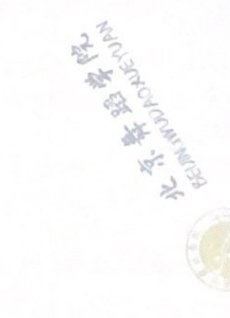 北京舞蹈学院
BEIJINGWUDAOXUEYUAN